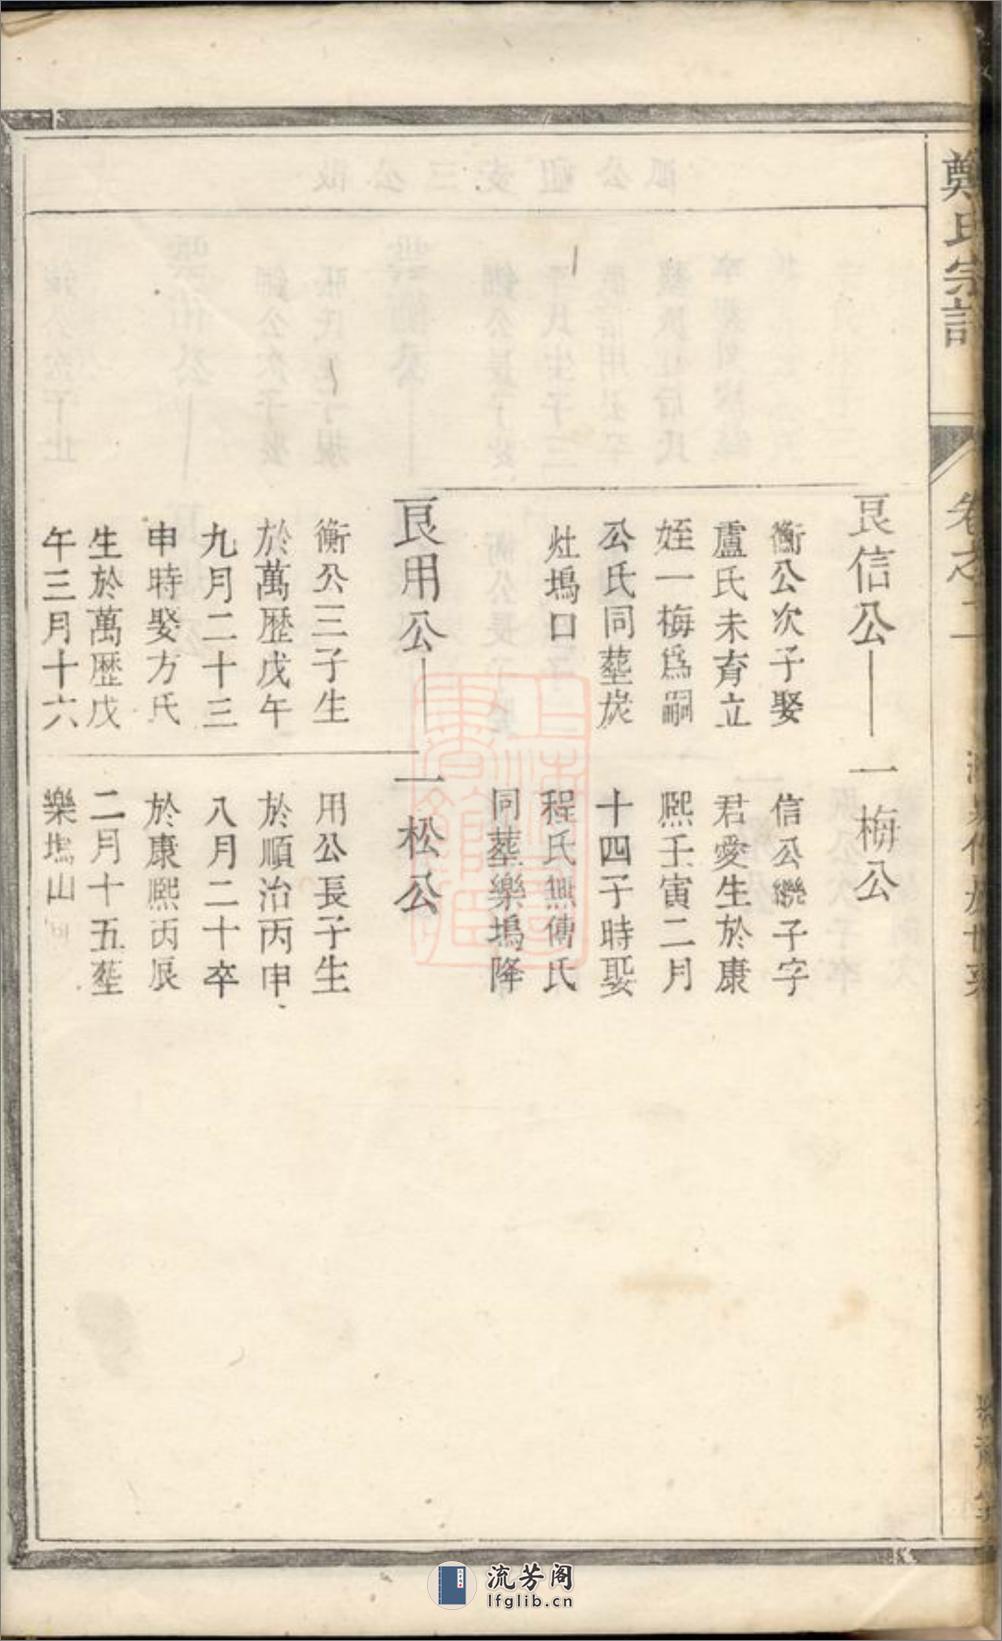 鄭氏宗譜
卷之二
良信公
衡公次子娶
盧氏未育立
姪一梅爲嗣
公氏同塟炭
灶塢口
一梅公
信公繼子字
君愛生於康
熙壬寅二月
十四子時娶
程氏無傳氏
同塟樂塢降
良用公
衡公三子生
於萬歷戊午
九月二十三
申時娶方氏
生於萬歷戊
午三月十六
一松公
用公長子生
於順治丙申
八月二十卒
於康熙丙辰
二月十五塟
樂塢山
流芳阁
lfglib.cn